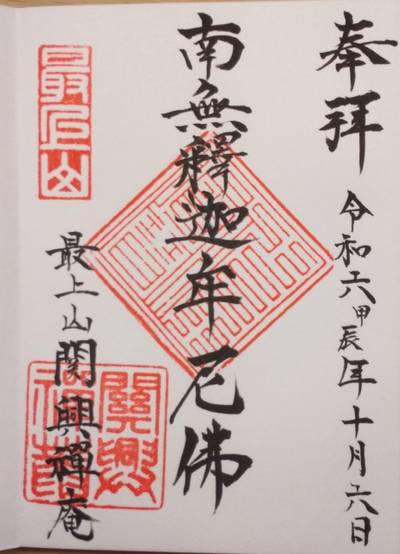 奉拝
令和六甲辰年十月六日
南無釋迦牟尼佛
最上山
最上山関興禪庵
關興